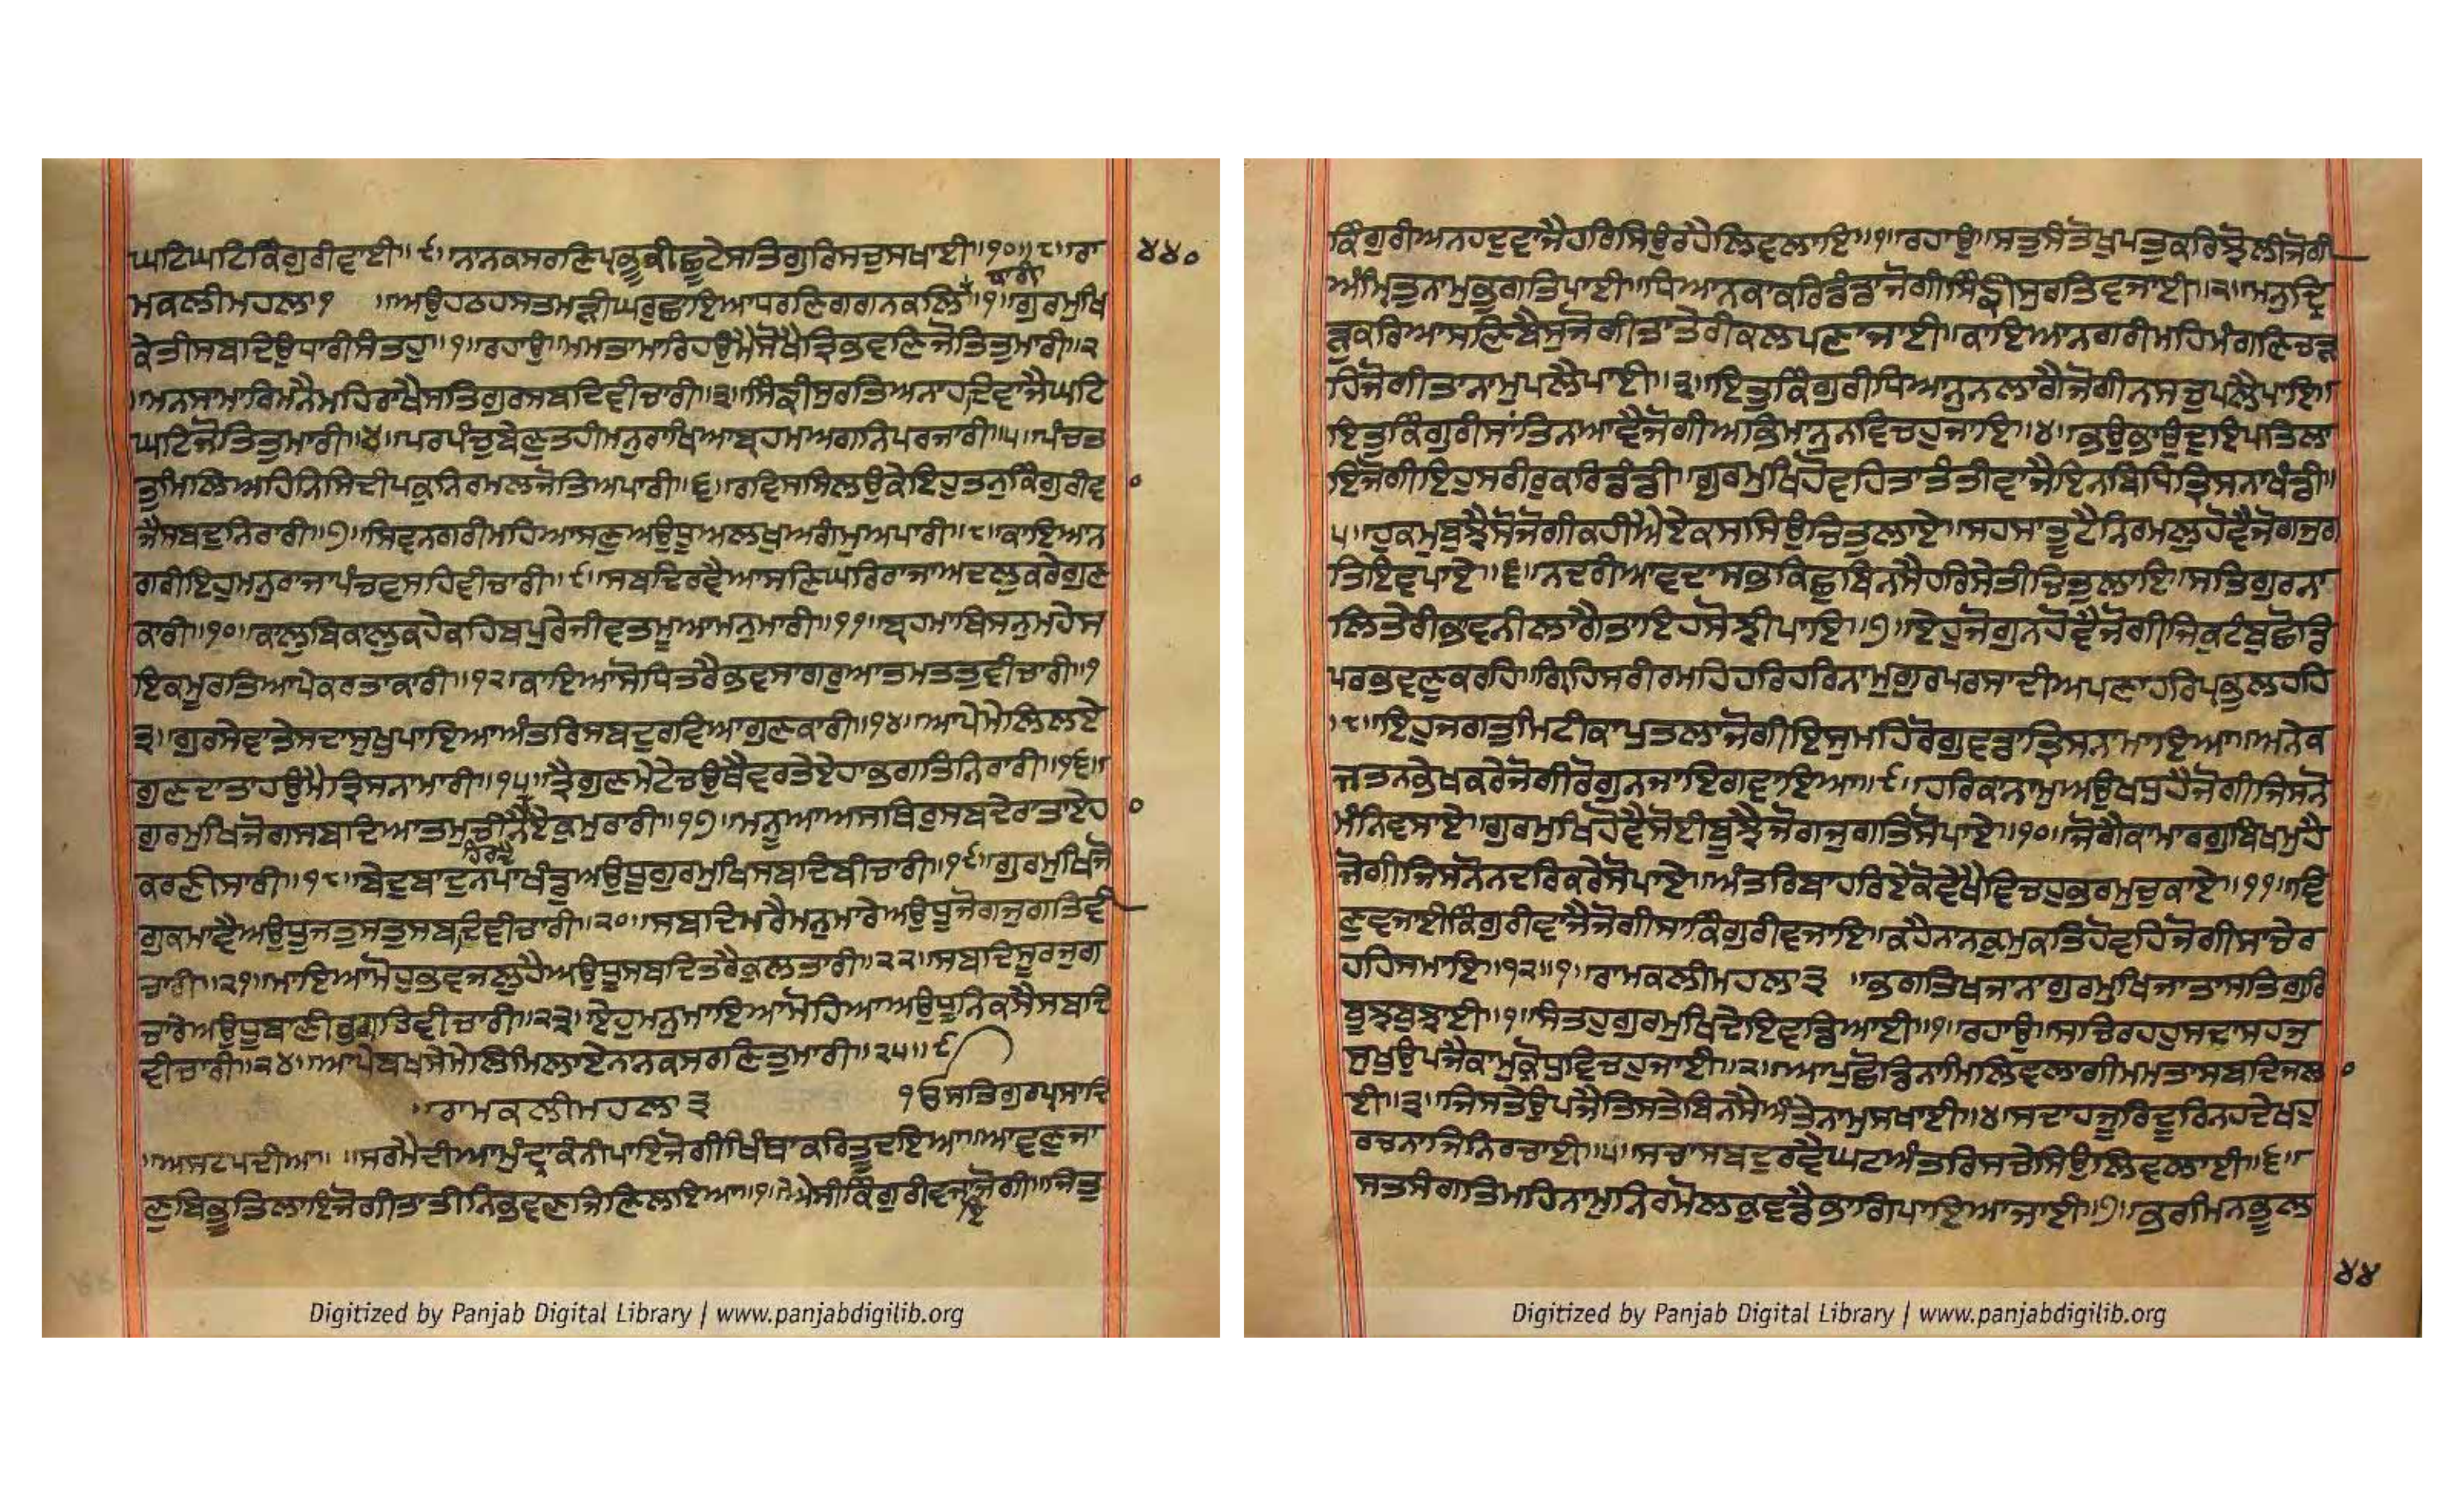 ਘਟਿਘਟਿਕਿੰਗੁਰੀਵਾਈ॥੯॥ਨਾਨਕਸਰਣਿਪ੍ਰਭੂਕੀਛੂਟੇਸਤਿਗੁਰਿਸਚੁਸਖਾਈ॥੧੦॥੮॥ਰਾ
੪੪੦
ਧਾਰੀ
ਮਕਲੀਮਹਲਾ੧ ॥ਅਉਹਠਹਸਤਮੜੀਘਰੁਛਾਇਆਧਰਣਿਗਗਨਕਲਿ॥੧॥ਗੁਰਮੁਖਿ
ਕੇਤੀਸਬਦਿਉਧਾਰੀਸੰਤਹੁ॥੧॥ਰਹਾਉ॥ਮਮਤਾਮਾਰਿਹਉਮੈਸੋਖੈਤ੍ਰਿਭਵਣਿਜੋਤਿਤੁਮਾਰੀ॥੨
॥ਮਨਸਾਮਾਰਿਮਨੈਮਹਿਰਾਖੈਸਤਿਗੁਰਸਬਦਿਵੀਚਾਰੀ॥੩॥ਸਿੰਙੀਸੁਰਤਿਅਨਾਹਦਿਵਾਜੈਘਟਿ
ਘਟਿਜੋਤਿਤੁਮਾਰੀ॥੪॥ਪਰਪੰਚਬੇਣੁਤਹੀਮਨੁਰਾਖਿਆਬ੍ਰਹਮਅਗਨਿਪਰਜਾਰੀ॥੫॥ਪੰਚਤ
ਤੁਮਿਲਿਅਹਿਨਿਸਿਦੀਪਕੁਨਿਰਮਲਜੋਤਿਅਪਾਰੀ॥੬॥ਰਵਿਸਸਿਲਉਕੇਇਹੁਤਨੁਕਿੰਗੁਰੀਵ
ਜੈਸਬਦੁਨਿਰਾਰੀ॥੭॥ਸਿਵਨਗਰੀਮਹਿਆਸਣੁਅਉਧੂਅਲਖੁਅਗੰਮੁਅਪਾਰੀ॥੮॥ਕਾਇਆਨ
ਗਰੀਇਹੁਮਨੁਰਾਜਾਪੰਚਵਸਹਿਵੀਚਾਰੀ॥੯॥ਸਬਦਿਰਵੈਆਸਣਿਘਰਿਰਾਜਾਅਦਲੁਕਰੇਗੁਣ
ਕਾਰੀ॥੧੦॥ਕਾਲੁਬਿਕਾਲੁਕਹੇਕਹਿਬਪੁਰੇਜੀਵਤਮੂਆਮਨੁਮਾਰੀ॥੧੧॥ਬ੍ਰਹਮਾਬਿਸਨੁਮਹੇਸ
ਇਕਮੂਰਤਿਆਪੇਕਰਤਾਕਾਰੀ॥੧੨॥ਕਾਇਆਸੋਧਿਤਰੈਭਵਸਾਗਰੁਆਤਮਤਤੁਵੀਚਾਰੀ॥੧
੩॥ਗੁਰਸੇਵਾਤੇਸਦਾਸੁਖੁਪਾਇਆਅੰਤਰਿਸਬਦੁਰਵਿਆਗੁਣਕਾਰੀ॥੧੪॥ਆਪੇਮੇਲਿਲਏ
ਗੁਣਦਾਤਾਹਉਮੈਤ੍ਰਿਸਨਾਮਾਰੀ॥੧੫॥ਤ੍ਰੈਗੁਣਮੇਟੇਚਉਥੈਵਰਤੈਏਹਾਭਗਤਿਨਿਰਾਰੀ॥੧੬॥
ਗੁਰਮੁਖਿਜੋਗਸਬਦਿਆਤਮੁਚੀਨੈਏਕੁਮੁਰਾਰੀ॥੧੭॥ਮਨੂਆਅਸਥਿਰੁਸਬਦੇਰਾਤਾਏਹ
ਹਿਰਦੈ
ਕਰਣੀਸਾਰੀ॥੧੮॥ਬੇਦੁਬਾਦੁਨਪਾਖੰਡੁਅਉਧੂਗੁਰਮੁਖਿਸਬਦਿਬੀਚਾਰੀ॥੧੯॥ਗੁਰਮੁਖਿਜੋ
ਗੁਕਮਾਵੈਅਉਧੂਜਤੁਸਤੁਸਬਦਿਵੀਚਾਰੀ॥੨੦॥ਸਬਦਿਮਰੈਮਨੁਮਾਰੇਅਉਧੂਜੋਗਜੁਗਤਿਵੀ
ਚਾਰੀ॥੨੧॥ਮਾਇਆਮੋਹੁਭਵਜਲੁਹੈਅਉਧੂਸਬਦਿਤਰੈਕੁਲਤਾਰੀ॥੨੨॥ਸਬਦਿਸੂਰਜੁਗ
ਚਾਰੇਅਉਧੂਬਾਣੀਭਗਤਿਵੀਚਾਰੀ॥੨੩॥ਏਹੁਮਨੁਮਾਇਆਮੋਹਿਆਅਉਧੂਨਿਕਸੈਸਬਦਿ
ਵੀਚਾਰੀ॥੨੪॥ਆਪੇਬਖਸੇਮੇਲਿਮਿਲਾਏਨਾਨਕਸਰਣਿਤੁਮਾਰੀ॥੨੫॥੯
॥ਰਾਮਕਲੀਮਹਲਾ੩ ੧ੳਸਤਿਗੁਰਪ੍ਰਸਾਦਿ
॥ਅਸਟਪਦੀਆ॥ ॥ਸਰਮੈਦੀਆਮੁੰਦ੍ਰਾਕੰਨੀਪਾਇਜੋਗੀਖਿੰਥਾਕਰਿਤੂਦਇਆ॥ਆਵਣੁਜਾ
ਣੁਬਿਭੂਤਿਲਾਇਜੋਗੀਤਾਤੀਨਿਭਵਣਜਿਣਿਲਾਇਆ॥੧॥ਐਸੀਕਿੰਗੁਰੀਵਜਾਜੋਗੀ॥ਜਿਤੁ
ਇ
ਕਿੰਗੁਰੀਅਨਹਦੁਵਾਜੈਹਰਿਸਿਉਰਹੈਲਿਵਲਾਇ॥੧॥ਰਹਾਉ॥ਸਤੁਸੰਤੋਖੁਪਤੁਕਰਿਝੋਲੀਜੋਗੀ
ਅੰਮ੍ਰਿਤੁਨਾਮੁਭੁਗਤਿਪਾਈ॥ਧਿਆਨਕਾਕਰਿਡੰਡਾਜੋਗੀਸਿੰਙੀਸੁਰਤਿਵਜਾਈ॥੨॥ਮਨੁਦ੍ਰਿ
ੜੁਕਰਿਆਸਣਿਬੈਸੁਜੋਗੀਤਾਤੇਰੀਕਲਪਣਾਜਾਈ॥ਕਾਇਆਨਗਰੀਮਹਿਮੰਗਣਿਚੜ
ਹਿਜੋਗੀਤਾਨਾਮੁਪਲੈਪਾਈ॥੩॥ਇਤੁਕਿੰਗੁਰੀਧਿਆਨੁਨਲਾਗੈਜੋਗੀਨਸਚੁਪਲੈਪਾਇ॥
ਇਤੁਕਿੰਗੁਰੀਸਾਂਤਿਨਆਵੈਜੋਗੀਅਭਿਮਾਨੁਨਵਿਚਹੁਜਾਇ॥੪॥ਭਉਭਾਉਦੁਇਪਤਿਲਾ
ਇਜੋਗੀਇਹੁਸਰੀਰੁਕਰਿਡੰਡੀ॥ਗੁਰਮੁਖਿਹੋਵਹਿਤਾਤੰਤੀਵਾਜੈਇਨਬਿਧਿਤ੍ਰਿਸਨਾਖੰਡੀ॥
੫॥ਹੁਕਮੁਬੁਝੈਸੋਜੋਗੀਕਹੀਐਏਕਸਸਿਉਚਿਤੁਲਾਏ॥ਸਹਸਾਤੂਟੈਨਿਰਮਲੁਹੋਵੈਜੋਗਜੁਗ
ਤਿਇਵਪਾਏ॥੬॥ਨਦਰੀਆਵਦਾਸਭਕਿਛੁਬਿਨਸੈਹਰਿਸੇਤੀਚਿਤੁਲਾਇ॥ਸਤਿਗੁਰਨਾ
ਲਿਤੇਰੀਭਾਵਨੀਲਾਗੈਤਾਇਹਸੋਝੀਪਾਇ॥੭॥ਇਹੁਜੋਗੁਨਹੋਵੈਜੋਗੀਜਿਕੁਟੰਬੁਛੋਡਿ
ਪਰਭਵਣੁਕਰਹਿ॥ਗ੍ਰਿਹਸਰੀਰਮਹਿਹਰਿਹਰਿਨਾਮੁਗੁਰਪਰਸਾਦੀਅਪਣਾਹਰਿਪ੍ਰਭੁਲਹਹਿ
॥੮॥ਇਹੁਜਗਤੁਮਿਟੀਕਾਪੁਤਲਾਜੋਗੀਇਸੁਮਹਿਰੋਗੁਵਡਾਤ੍ਰਿਸਨਾਮਾਇਆ॥ਅਨੇਕ
ਜਤਨਭੇਖਕਰੇਜੋਗੀਰੋਗੁਨਜਾਇਗਵਾਇਆ॥੯॥ਹਰਿਕਾਨਾਮੁਅਉਖਧੁਹੈਜੋਗੀਜਿਸਨੋ
ਮੰਨਿਵਸਾਏ॥ਗੁਰਮੁਖਿਹੋਵੈਸੋਈਬੂਝੈਜੋਗਜੁਗਤਿਸੋਪਾਏ॥੧੦॥ਜੋਗੈਕਾਮਾਰਗੁਬਿਖਮੁਹੈ
ਜੋਗੀਜਿਸਨੋਨਦਰਿਕਰੇਸੋਪਾਏ॥ਅੰਤਰਿਬਾਹਰਿਏਕੋਵੇਖੈਵਿਚਹੁਭਰਮੁਚੁਕਾਏ॥੧੧॥ਵਿ
ਣੁਵਜਾਈਕਿੰਗੁਰੀਵਾਜੈਜੋਗੀਸਾਕਿੰਗੁਰੀਵਜਾਇ॥ਕਹੈਨਾਨਕੁਮੁਕਤਿਹੋਵਹਿਜੋਗੀਸਾਚੇਰ
ਹਹਿਸਮਾਇ॥੧੨॥੧॥ਰਾਮਕਲੀਮਹਲਾ੩ ॥ਭਗਤਿਖਜਾਨਾਗੁਰਮੁਖਿਜਾਤਾਸਤਿਗੁਰਿ
ਬੁਝਬੁਝਾਈ॥੧॥ਸੰਤਹੁਗੁਰਮੁਖਿਦੇਇਵਡਿਆਈ॥੧॥ਰਹਾਉ॥ਸਚਿਰਹਹੁਸਦਾਸਹਜੁ
ਸੁਖੁਉਪਜੈਕਾਮੁਕ੍ਰੋਧੁਵਿਚਹੁਜਾਈ॥੨॥ਆਪੁਛੋਡਿਨਾਮਿਲਿਵਲਾਗੀਮਮਤਾਸਬਦਿਜਲ
ਈ॥੩॥ਜਿਸਤੇਉਪਜੈਤਿਸਤੇਬਿਨਸੈਅੰਤੇਨਾਮੁਸਖਾਈ॥੪॥ਸਦਾਹਜੂਰਿਦੂਰਿਨਹਦੇਖਹੁ
ਰਚਨਾਜਿਨਿਰਚਾਈ॥੫॥ਸਚਾਸਬਦੁਰਵੈਘਟਅੰਤਰਿਸਚੇਸਿਉਲਿਵਲਾਈ॥੬॥
ਸਤਸੰਗਤਿਮਹਿਨਾਮੁਨਿਰਮੋਲਕੁਵਡੈਭਾਗਿਪਾਇਆਜਾਈ॥੭॥ਭਰਮਿਨਭੂਲ
੪੪
Digitized by Panjab Digital Library | www.panjabdigilib.org
Digitized by Panjab Digital Library | www.panjabdigilib.org